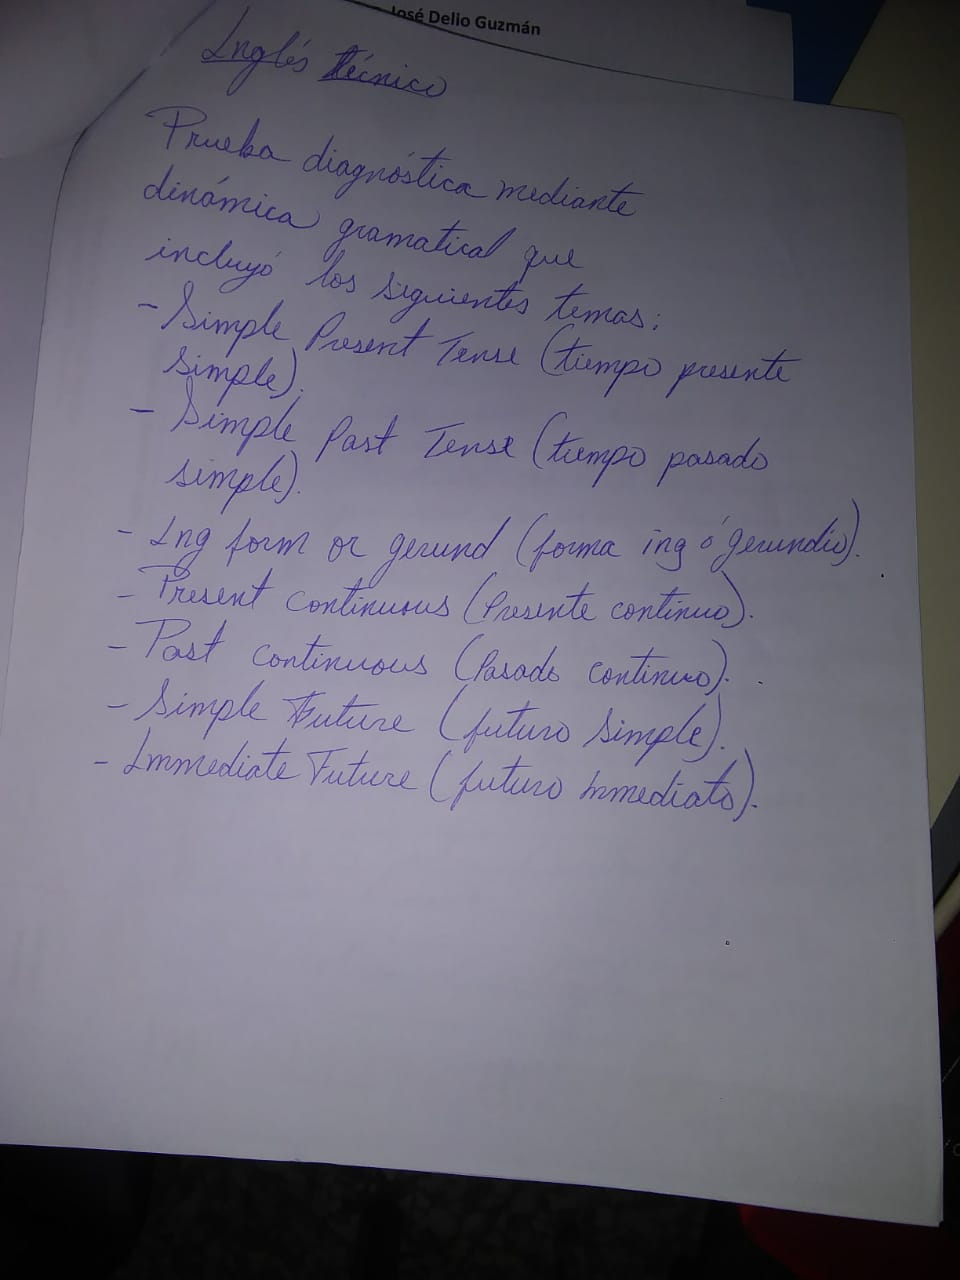 José Delio Guzmán
Inglés técnico
Prueba diagnóstica mediante
dinámica gramatical que
incluyó los siguientes temas:
- Simple Present Tense (tiempo presente
simple).
- Simple Past Tense (tiempo pasado
simple).
- Ing form or gerund (forma ing ó gerundio).
- Present continuous (Presente continuo).
- Past continuous (Pasado continuo).
- Simple Future (futuro simple).
- Immediate Future (futuro Inmediato).